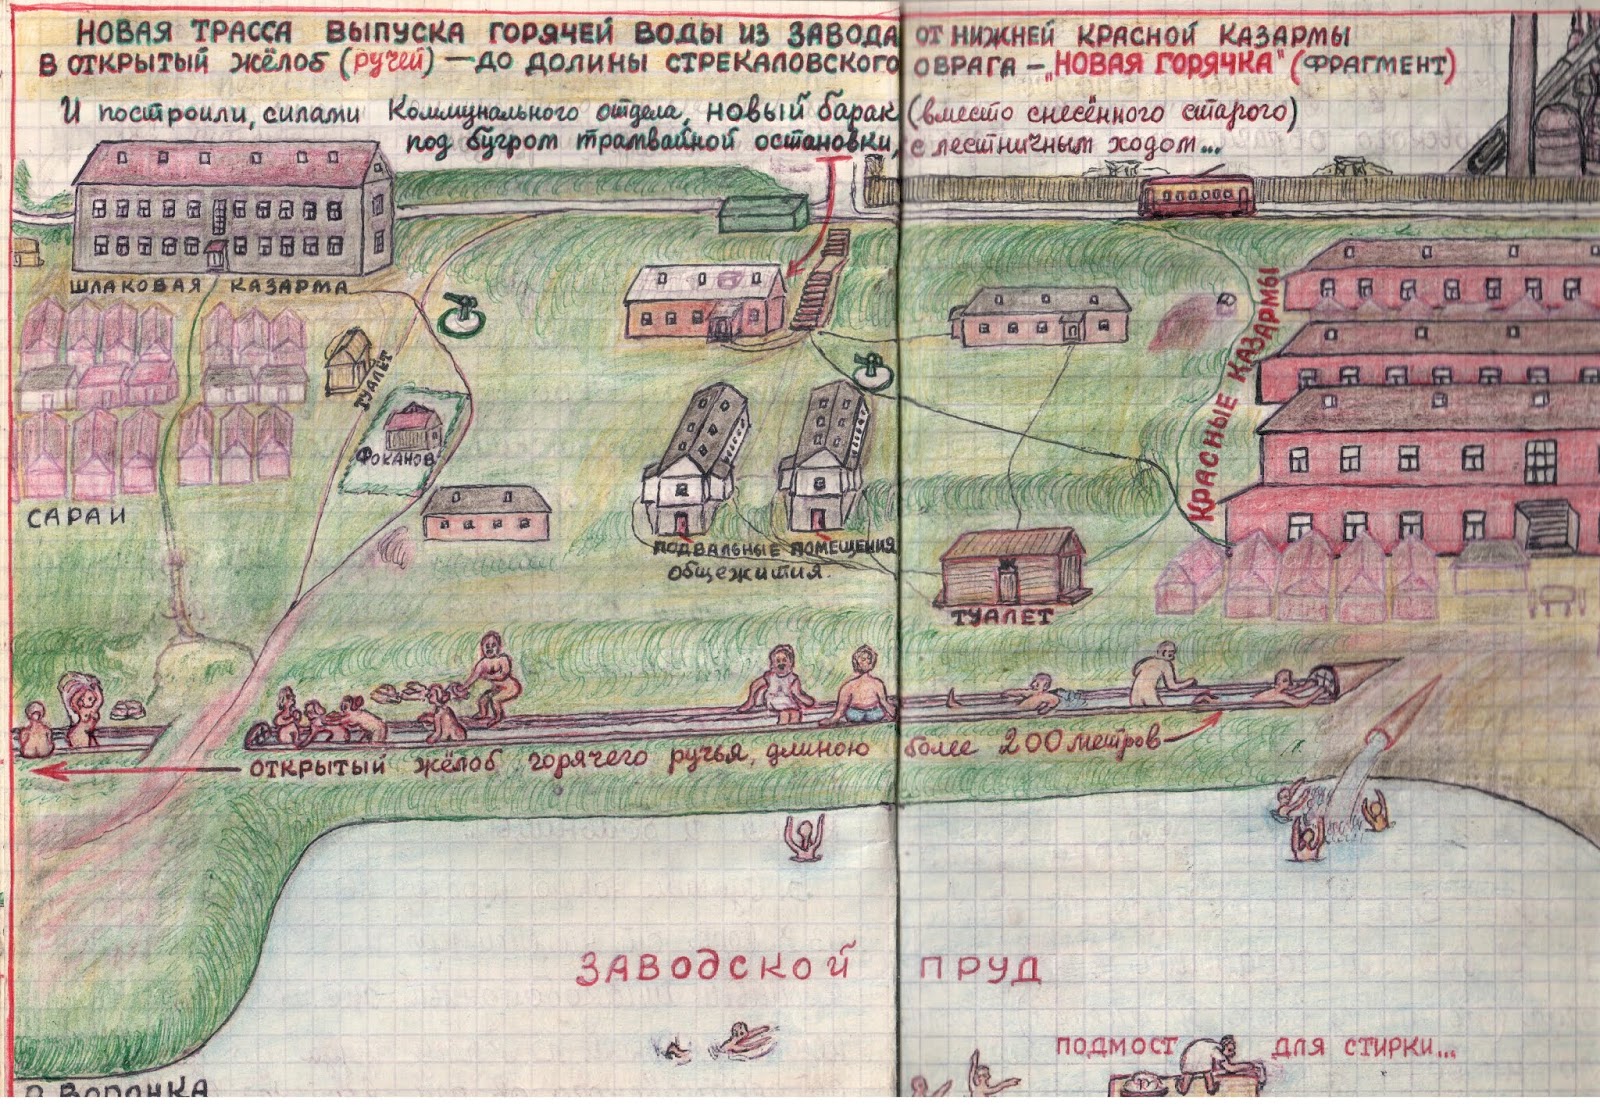 НОВАЯ ТРАССА ВЫПУСКА ГОРЯЧЕЙ ВОДЫ ИЗ ЗАВОДА ОТ НИЖНЕЙ КРАСНОЙ КАЗАРМЫ
В ОТКРЫТЫЙ ЖЁЛОБ (РУЧЕЙ) — ДО ДОЛИНЫ СТРЕКАЛОВСКОГО ОВРАГА – „НОВАЯ ГОРЯЧКА" (ФРАГМЕНТ)
И построили, силами Коммунального отдела, новый барак (вместо снесённого старого)
под бугром трамвайной остановки, с лестничным ходом...
ШЛАКОВАЯ КАЗАРМА
ТУАЛЕТ
КРАСНЫЕ КАЗАРМЫ
ФОКАНОВ
САРАИ
ПОДВАЛЬНЫЕ ПОМЕЩЕНИЯ
ОБЩЕЖИТИЯ.
ТУАЛЕТ
ОТКРЫТЫЙ жёлоб горячего ручья, длиною более 200 метров
ЗАВОДСКОЙ ПРУД
ПОДМОСТ ДЛЯ СТИРКИ...
Р. ВОРОНКА